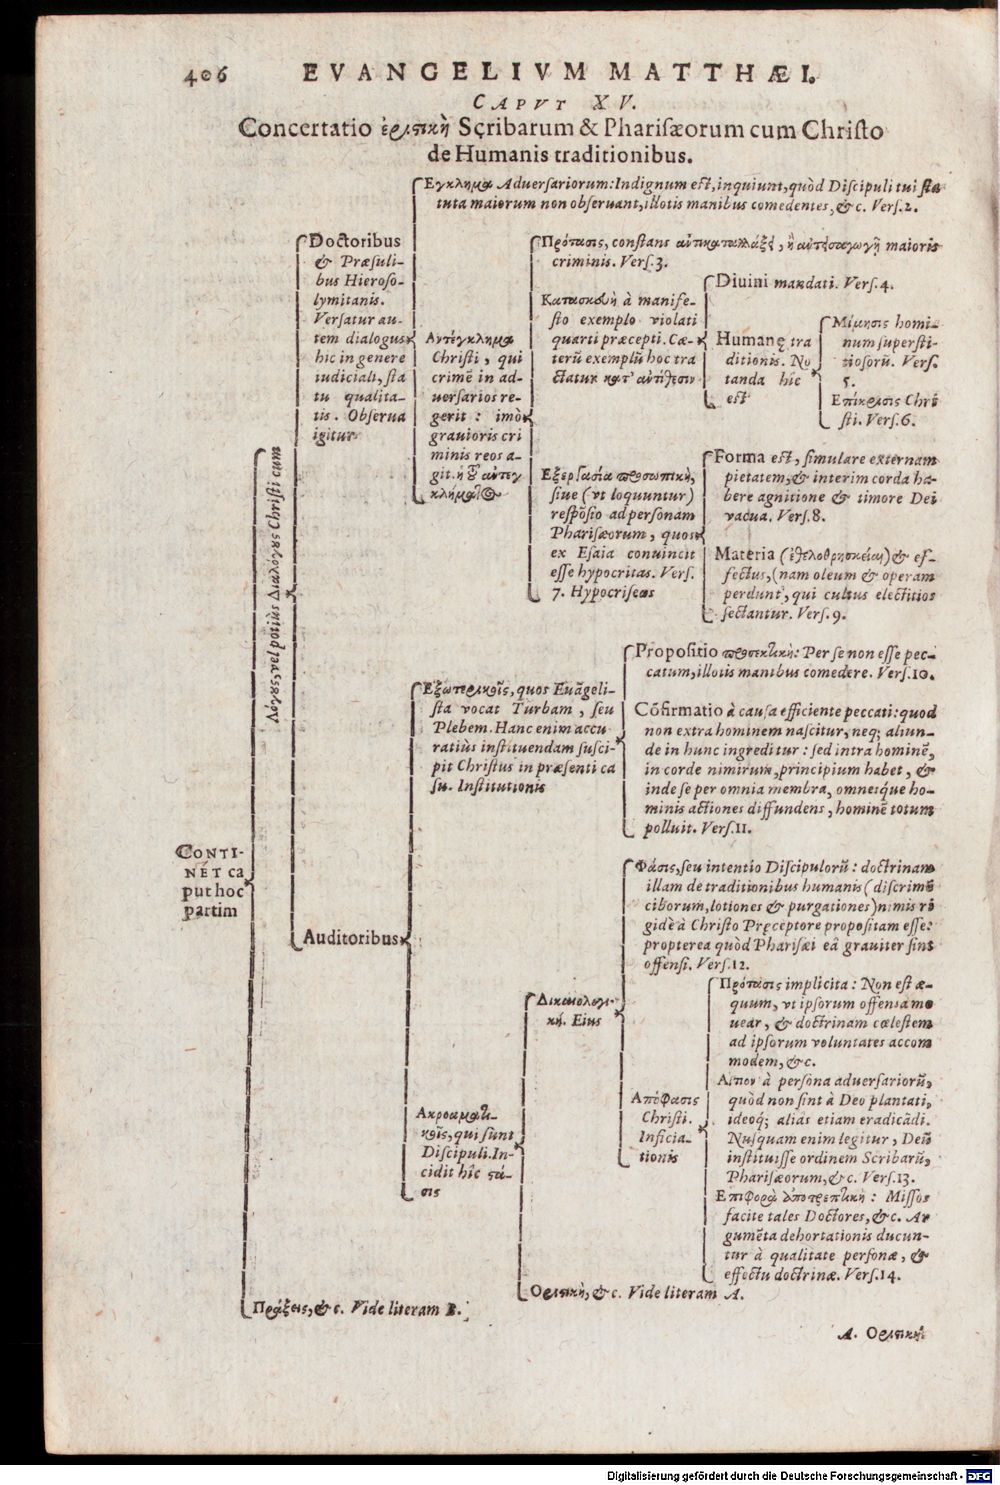 406 EVANGELIVM MATTHÆI.
CAPVT XV.
Concertatio ἐριστικὴ Scribarum & Pharisæorum cum Christo
de Humanis traditionibus.
Εγκλημα Adversariorum: Indignum est, inquiunt, quòd Discipuli tui sta
tuta maiorum non observant, illotis manibus comedentes, &c. Vers. 2.
Doctoribus
& Præsuli-
bus Hieroso-
lymitanis.
Versatur au-
tem dialogus
hic in genere
iudiciali, sta
tu qualita-
tis. Observa
igitur
Αντέγκλημα
Christi, qui
crimẽ in ad-
versarios re-
gerit: imò
gravioris cri
minis reos a-
git.
Πρότασις, constans ἀντικαταλλάξει, ἢ ἀντεισαγωγῇ maioris
criminis. Vers. 3.
Κατασκευὴ à manife-
sto exemplo violati
quarti præcepti. Cæ-
terũ exemplũ hoc tra
ctatur κατ' ἀντίθεσιν
Divini mandati. Vers. 4.
Humanę tra
ditionis. No
tanda hîc
est
Μίμησις homi-
num supersti-
tiosorũ. Vers.
5.
Επίκρισις Chri
sti. Vers. 6.
Εξεργασία προσωπικὴ,
sive (vt loquuntur)
respõsio ad personam
Pharisæorum, quos
ex Esaia convincit
esse hypocritas. Vers.
7. Hypocriseos
Forma est, simulare externam
pietatem, & interim corda ha-
bere agnitione & timore Dei
vacua. Vers. 8.
Materia (ἐθελοθρησκείαν) & ef-
fectus, (nam oleum & operam
perdunt, qui cultus electitios
sectantur. Vers. 9.
Λόγους vel potiùs Διαλόγους Christi cum
Εξωτερικοῖς, quos Evãgeli-
sta vocat Turbam, seu
Plebem. Hanc enim accu
ratiùs instituendam susci-
pit Christus in præsenti ca
su. Institutionis
Propositio προσεκτικὴ: Per se non esse pec-
catum, illotis manibus comedere. Vers. 10.
Cõfirmatio à causa efficiente peccati: quod
non extra hominem nascitur, neq; aliun-
de in hunc ingreditur: sed intra hominẽ,
in corde nimirum, principium habet, &
inde se per omnia membra, omnesque ho-
minis actiones diffundens, hominẽ totum
polluit. Vers. 11.
CONTI-
NET ca
put hoc
partim
Auditoribus
Ακροαματι-
κοῖς, qui sunt
Discipuli. In-
cidit hîc στά-
σις
Δικαιολογι-
κή. Eius
Φάσις, seu intentio Discipulorũ: doctrinam
illam de traditionibus humanis (discrimẽ
ciborum, lotiones & purgationes) nimis ri
gidè à Christo Pręceptore propositam esse:
propterea quòd Pharisæi eâ graviter sint
offensi. Vers. 12.
Απόφασις
Christi.
Inficia-
tionis
Πρότασις implicita: Non est æ-
quum, vt ipsorum offensa mo
vear, & doctrinam cœlestem
ad ipsorum voluntates accom
modem, &c.
Αιτιον à persona adversariorũ,
quòd non sint à Deo plantati,
ideoq; aliàs etiam eradicãdi.
Nusquam enim legitur, Deũ
instituisse ordinem Scribarũ,
Pharisæorum, &c. Vers. 13.
Επιφορὰ ἀποτρεπτικὴ: Missos
facite tales Doctores, &c. Ar
gumẽta dehortationis ducun-
tur à qualitate personæ, &
effectu doctrinæ. Vers. 14.
Οριστικὴ, &c. Vide literam A.
Πράξεις, &c. Vide literam B.
A. Οριστικὴ
Digitalisierung gefördert durch die Deutsche Forschungsgemeinschaft - DFG